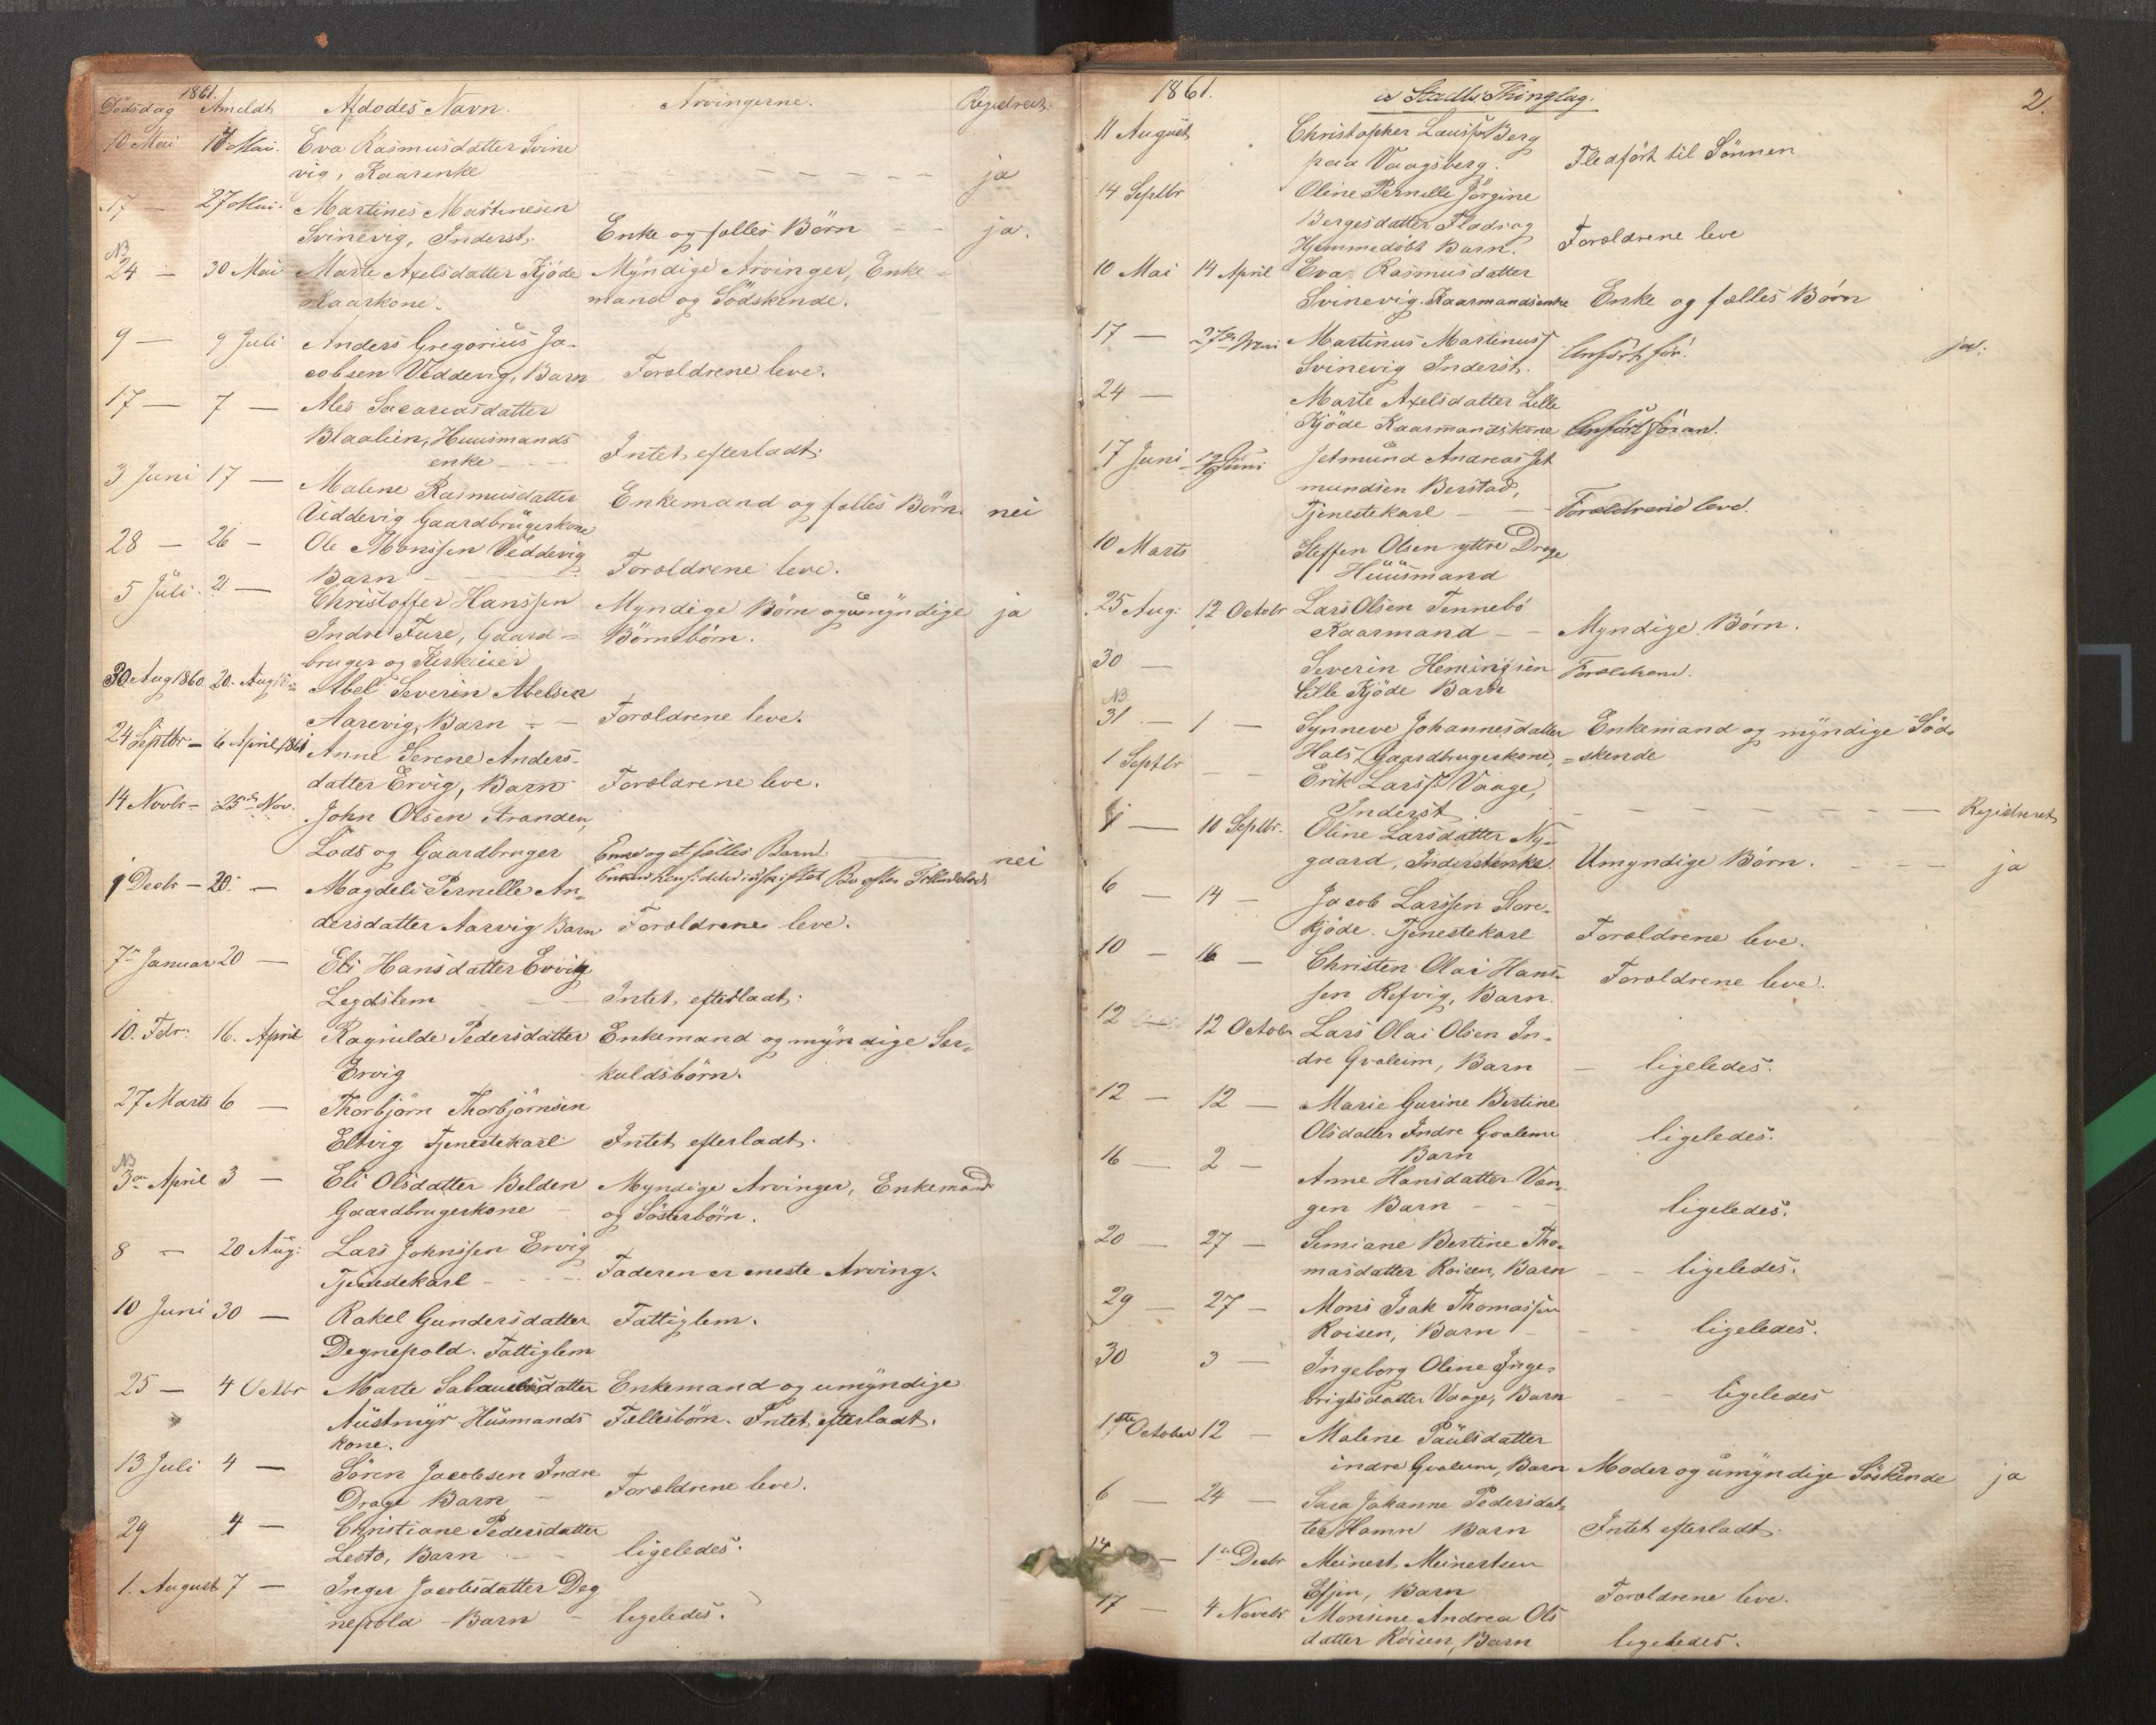 1861.
Dödsdag Anmeldt Afdödes Navn. Arvingerne. Registreret.
10 Mai 18 Mai. Eva Rasmusdatter Svine
vig, Kaarenke - - - - - - - ja
17 — 27 Mai. Martines Martinesen
Svinevig, Inderst. Enke og fælles Börn - - ja.
NB
24 — 30 Mai Marte Axelsdatter Kjöde Myndige Arvinger, Enke-
Kaarkone. mand og Södskende.
9 — 9 Juli Anders Gregorius Ja-
cobsen Veddevig, Barn Forældrene leve.
17 — 7 — Ales Sacariasdatter
Blaalien, Huusmands
enke - - Intet efterladt.
3 Juni 17 — Malene Rasmusdatter
Veddevig Gaardbrugerkone Enkemand og fælles Börn. nei
28 — 26 — Ole Monssen Veddevig
Barn - - Forældrene leve.
5 Juli. 2 — Christoffer Hanssen Myndige Börn og umyndige ja
Indre Fure, Gaard- Börnebörn.
bruger og
30 Aug 1860 20. Aug Abel Severin Abelsen
Aarevig, Barn - - Forældrene leve.
24 Septbr - 6 April 1861 Anne Serene Anders-
datter Ervig, Barn Forældrene leve.
14 Novbr - 25de Nov. John Olsen Stranden,
Lods og Gaardbruger Enke og et fælles Barn. nei
1 Decbr - 20. — Magdeli Pernelle An-
dersdatter Aarvig Barn Forældrene leve.
7de Januar 20 — Eli Hansdatter Ervig
Legdslem - - Intet efterladt.
10. Febr. 16. April Ragnilde Pedersdatter Enkemand og myndige Sær-
Ervig kuldsbörn.
27 Marts 6 — Thorbjörn Thorbjörnsen
Eltvig Tjenestekarl Intet efterladt.
NB
3die April 3 — Eli Olsdatter Belden Myndige Arvinger, Enkemand
Gaardbrugerkone - og Sösterbörn.
8 — 20 Aug: Lars Johnssen Ervig
Tjenestekarl - - - Faderen er eneste Arving.
10 Juni 30 — Rakel Gundersdatter Fattiglem.
Degnepold. Fattiglem
25 — 4 Octbr Marte datter Enkemand og umyndige
Austmyr Husmands Fællesbörn. Intet efterladt.
kone.
13 Juli 4 — Sören Jacobsen Indre
Drage Barn - Forældrene leve.
29 4 — Christiane Pedersdatter
Lesto, Barn - - ligeledes.
1. August 7 — Inger Jacobsdatter Deg
nepold - Barn - ligeledes.
1861. Stadts Thinglag. 2.
11 August Christopher Lauss Berg
paa Vaagsberg. Fledfört til Sönnen
14 Septbr Oline Pernille Jörgine
Bergesdatter Flodrog
Hjemmedöbt Barn. Forældrene leve
10 Mai 14 April Eva Rasmusdatter
Svinevig. Kaarmandsenke Enke og fælles Börn
17 — 27de Mai Martinus Martinuss
Svinevig Inderst. Anfört för. ja.
24 — Marte Axelsdatter Lille
Kjöde Kaarmandskone Anfört foran.
17 Juni Jetmund Andreas Jet
mundsen Berstad,
Tjenestekarl - - Forældrene leve.
10 Marts Steffen Olsen yttre Drage
Huusmand
25 Aug: 12 Octobr Lars Olsen Tennebö
Kaarmand - - Myndige Börn.
30 — Severin Hemingsen
Lille Kjöde Barn
NB
31 — 1 — Synneve Johannesdatter Enkemand og myndige Söd-
Hals, Gaardbrugerkone, -skende
1 Septbr - - Erik Larss. Vaage,
Inderst. - - - - - - Registreret
— 10 Septbr. Oline Larsdatter Ny-
gaard, Inderstenke. Umyndige Börn. - - - ja
6 — 14 — Jacob Larssen Store-
Kjöde. Tjenestekarl Forældrene leve.
10 — 16 — Christen Olai Hans-
sen Refvig, Barn. Forældrene leve.
12 — 12 Octobr Lars Olai Olsen In-
dre Gvaleim, Barn - ligeledes.
12 — 12 — Marie Gurine Bertine
Olsdatter Indre Gvaleim ligeledes.
Barn
16 — 2 — Anne Hansdatter Van-
gen Barn - - - ligeledes.
20 — 27 — Semiane Bertine Tho-
masdatter Roisen, Barn - - ligeledes.
29 — 27 — Mons Isak Thomassen
Roisen, Barn - - ligeledes.
30 3 — Ingeborg Oline Inge-
brigtsdatter Vaage, Barn - - ligeledes
1ste October 12 — Malene Paulsdatter
indre Gvaleim, Barn Moder og umyndige Söskende ja
6 — 24 — Sara Johanne Pedersdat-
ter Hamn Barn Intet efterladt.
14 — 1de Decbr Meinert Meinertsen
Barn Forældrene leve.
17 — 4 Novebr Monsine Andrea Ols
datter Roisen, Barn ligeledes.